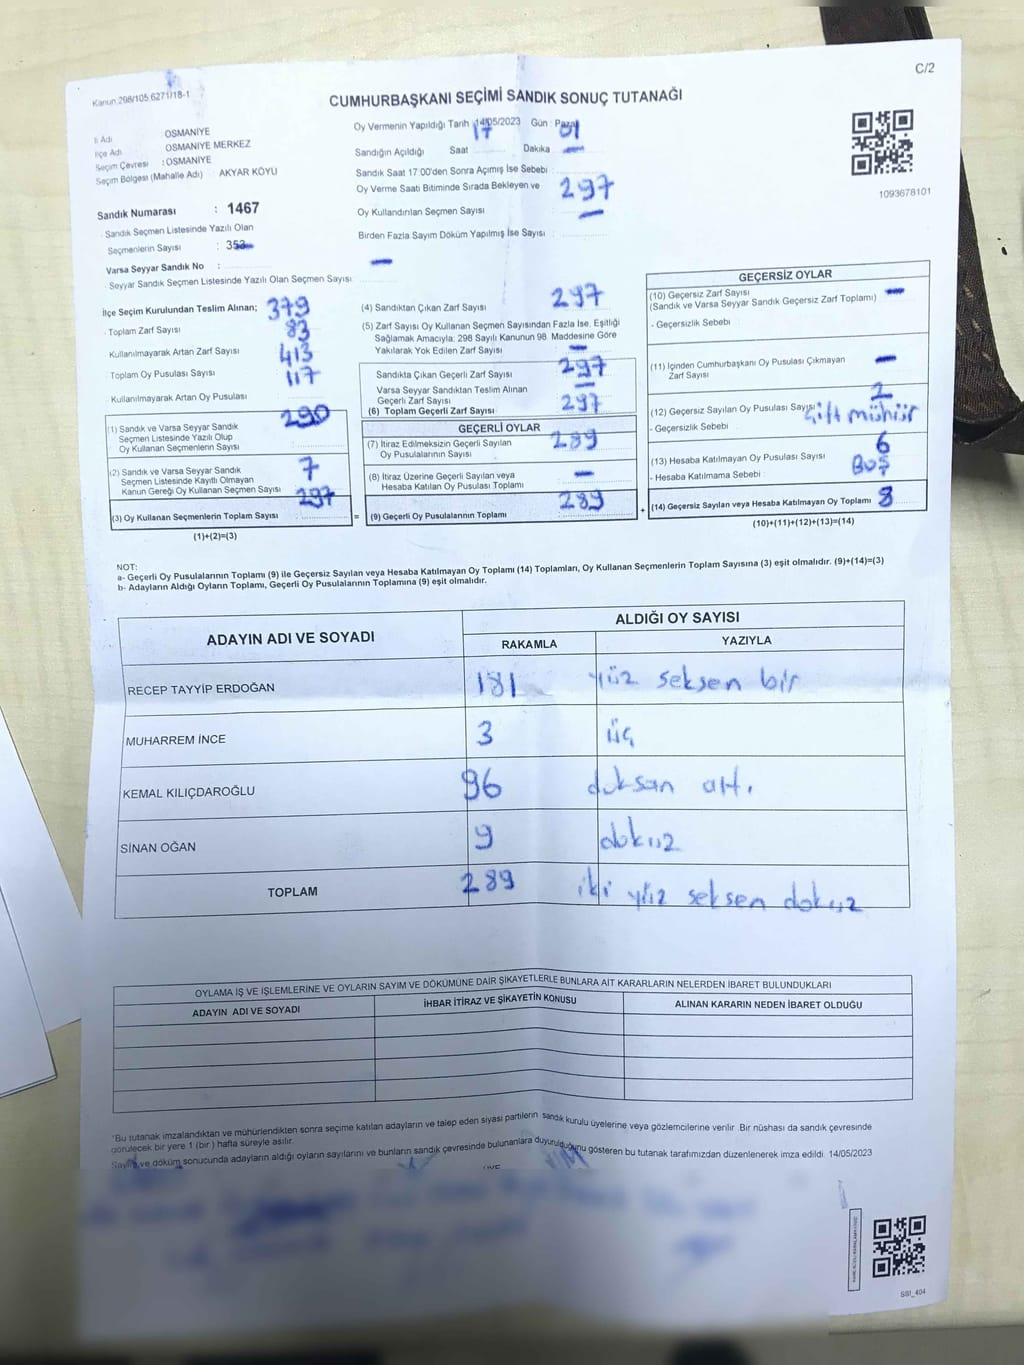 C/2
Kanun:298/105.6271/18-1
CUMHURBAŞKANI SEÇİMİ SANDIK SONUÇ TUTANAĞI
İl Adı OSMANİYE
İlçe Adı OSMANİYE MERKEZ
Seçim Çevresi : OSMANİYE
Seçim Bölgesi (Mahalle Adı) AKYAR KÖYÜ
Sandık Numarası : 1467
Sandık Seçmen Listesinde Yazılı Olan
Seçmenlerin Sayısı : 353
Varsa Seyyar Sandık No :
Seyyar Sandık Seçmen Listesinde Yazılı Olan Seçmen Sayısı
Oy Vermenin Yapıldığı Tarih 14/05/2023 Gün : Pazar
Sandığın Açıldığı Saat 17 Dakika 01
Sandık Saat 17:00'den Sonra Açımış İse Sebebi : —
Oy Verme Saati Bitiminde Sırada Bekleyen ve
Oy Kullandırılan Seçmen Sayısı 297
Birden Fazla Sayım Döküm Yapılmış İse Sayısı : —
1093678101
İlçe Seçim Kurulundan Teslim Alınan;
Toplam Zarf Sayısı 379
Kullanılmayarak Artan Zarf Sayısı 83
Toplam Oy Pusulası Sayısı 413
Kullanılmayarak Artan Oy Pusulası 117
(1) Sandık ve Varsa Seyyar Sandık
Seçmen Listesinde Yazılı Olup
Oy Kullanan Seçmenlerin Sayısı 290
(2) Sandık ve Varsa Seyyar Sandık
Seçmen Listesinde Kayıtlı Olmayan
Kanun Gereği Oy Kullanan Seçmen Sayısı 7
(3) Oy Kullanan Seçmenlerin Toplam Sayısı 297
(1)+(2)=(3)
(4) Sandıktan Çıkan Zarf Sayısı 297
(5) Zarf Sayısı Oy Kullanan Seçmen Sayısından Fazla İse, Eşitliği
Sağlamak Amacıyla; 298 Sayılı Kanunun 98. Maddesine Göre
Yakılarak Yok Edilen Zarf Sayısı —
Sandıkta Çıkan Geçerli Zarf Sayısı 297
Varsa Seyyar Sandıktan Teslim Alınan
Geçerli Zarf Sayısı —
(6) Toplam Geçerli Zarf Sayısı 297
GEÇERLİ OYLAR
(7) İtiraz Edilmeksizin Geçerli Sayılan
Oy Pusulalarının Sayısı 289
(8) İtiraz Üzerine Geçerli Sayılan veya
Hesaba Katılan Oy Pusulası Toplamı —
= (9) Geçerli Oy Pusulalarının Toplamı 289
GEÇERSİZ OYLAR
(10) Geçersiz Zarf Sayısı —
(Sandık ve Varsa Seyyar Sandık Geçersiz Zarf Toplamı)
- Geçersizlik Sebebi
(11) İçinden Cumhurbaşkanı Oy Pusulası Çıkmayan
Zarf Sayısı —
(12) Geçersiz Sayılan Oy Pusulası Sayısı 2
- Geçersizlik Sebebi çift mühür
(13) Hesaba Katılmayan Oy Pusulası Sayısı 6
- Hesaba Katılmama Sebebi : Boş
+ (14) Geçersiz Sayılan veya Hesaba Katılmayan Oy Toplamı 8
(10)+(11)+(12)+(13)=(14)
NOT:
a- Geçerli Oy Pusulalarının Toplamı (9) ile Geçersiz Sayılan veya Hesaba Katılmayan Oy Toplamı (14) Toplamları, Oy Kullanan Seçmenlerin Toplam Sayısına (3) eşit olmalıdır. (9)+(14)=(3)
b- Adayların Aldığı Oyların Toplamı, Geçerli Oy Pusulalarının Toplamına (9) eşit olmalıdır.
ADAYIN ADI VE SOYADI ALDIĞI OY SAYISI
RAKAMLA YAZIYLA
RECEP TAYYİP ERDOĞAN 181 yüz seksen bir
MUHARREM İNCE 3 üç
KEMAL KILIÇDAROĞLU 96 doksan altı
SİNAN OĞAN 9 dokuz
TOPLAM 289 iki yüz seksen dokuz
OYLAMA İŞ VE İŞLEMLERİNE VE OYLARIN SAYIM VE DÖKÜMÜNE DAİR ŞİKAYETLERLE BUNLARA AİT KARARLARIN NELERDEN İBARET BULUNDUKLARI
ADAYIN ADI VE SOYADI İHBAR İTİRAZ VE ŞİKAYETİN KONUSU ALINAN KARARIN NEDEN İBARET OLDUĞU
*Bu tutanak imzalandıktan ve mühürlendikten sonra seçime katılan adayların ve talep eden siyasi partilerin sandık kurulu üyelerine veya gözlemcilerine verilir. Bir nüshası da sandık çevresinde
görülecek bir yere 1 (bir) hafta süreyle asılır.
Sayım ve döküm sonucunda adayların aldığı oyların sayılarını ve bunların sandık çevresinde bulunanlara duyurulduğunu gösteren bu tutanak tarafımızdan düzenlenerek imza edildi. 14/05/2023
SSI_404